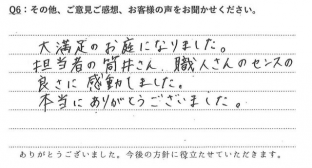 Q6：その他、ご意見ご感想、お客様の声をお聞かせください。
大満足のお庭になりました。
担当者の筒井さん、職人さんのセンスの
良さに感動しました。
本当にありがとうございました。
ありがとうございました。今後の方針に役立たせていただきます。